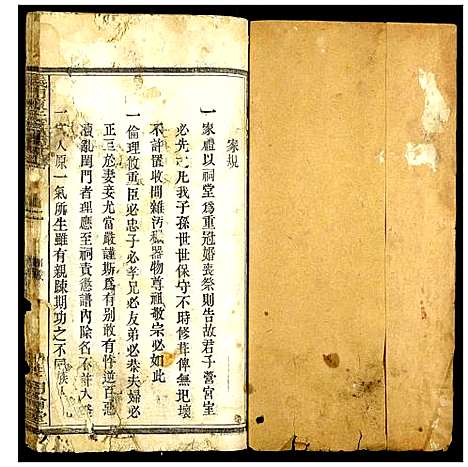 家規
一家禮以祠堂爲重冠婚喪祭則告故君子營宮室
必先之凡我子孫世世保守不時修葺俾無圮壞
不許置收閒雜汚穢器物尊祖敬宗必如此
一倫理攸重臣必忠子必孝兄必友弟必恭夫婦必
正至於妻妾尤當嚴謹斯爲有別敢有悖逆百惡
瀆亂閨門者理應至祠責懲譜內除名不許入
一人原一氣所生雖有親疎期功之不同族